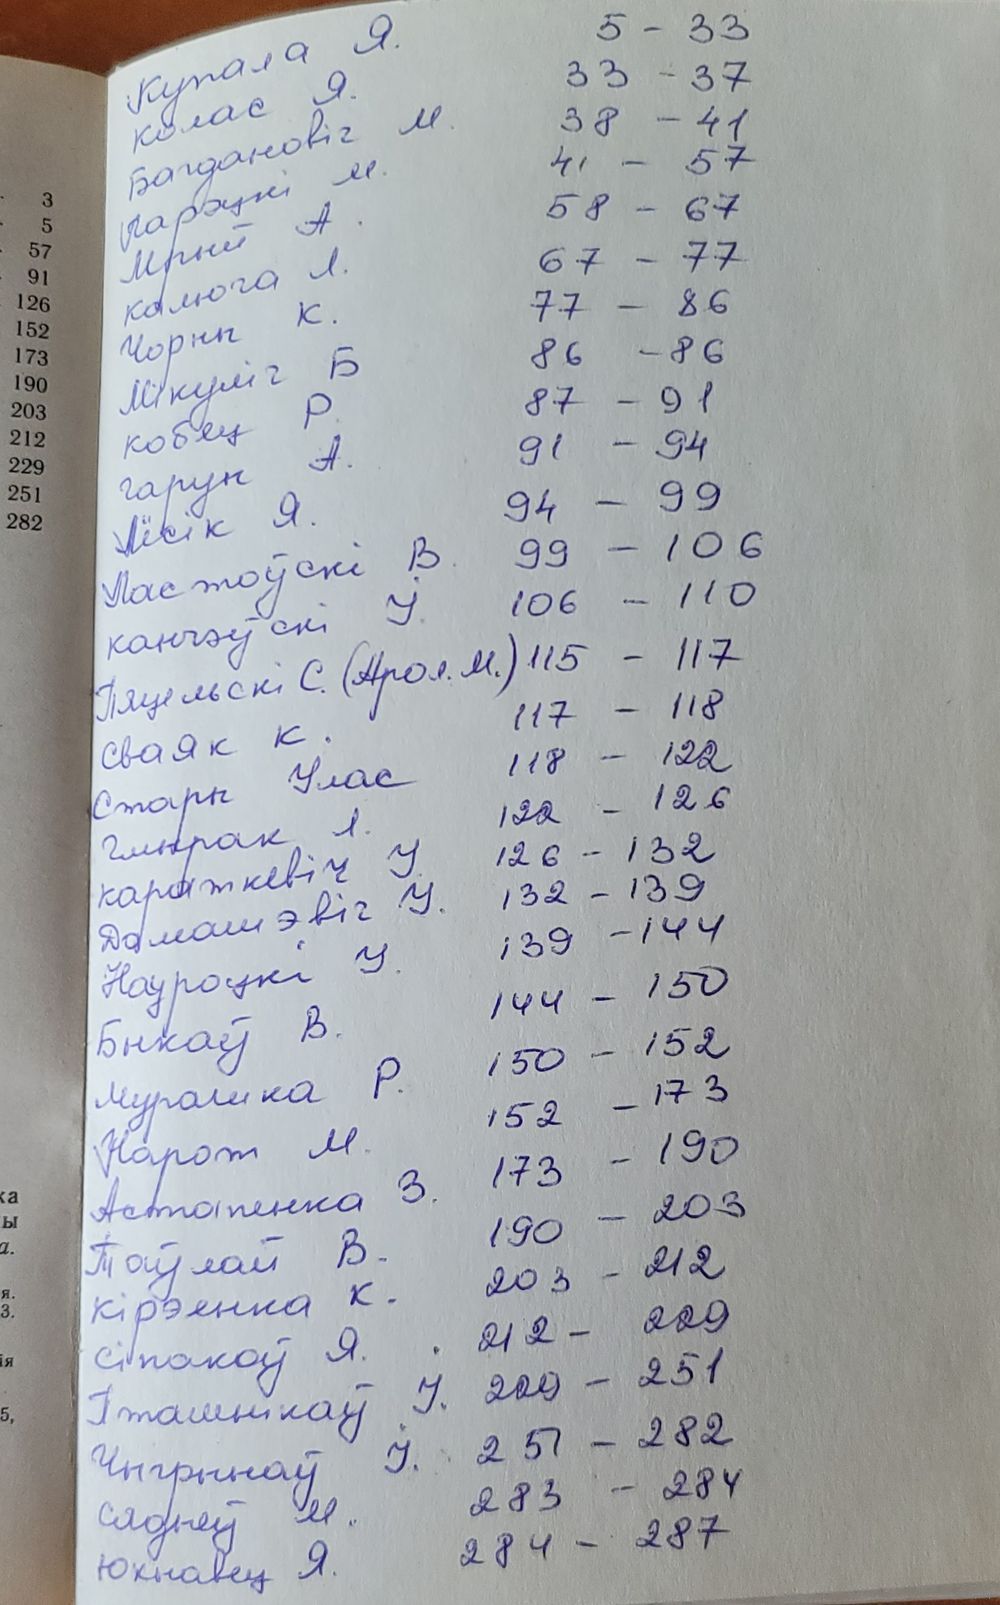 3
5
57
91
126
152
173
190
203
212
229
251
282
Купала Я. 5 - 33
Колас Я. 33 - 37
Багдановіч М. 38 - 41
Гарэцкі М. 41 - 57
Мрый А. 58 - 67
Калюга Л. 67 - 77
Чорны К. 77 - 86
Мікуліч Б 86 - 86
Кобяц Р. 87 - 91
Гарун А. 91 - 94
Лёсік Я. 94 - 99
Ластоўскі В. 99 - 106
Канчэўскі У. 106 - 110
Пяцельскі С. (Арол. М.) 115 - 117
Сваяк К. 117 - 118
Стары Улас 118 - 122
Гмырак Л. 122 - 126
Караткевіч У. 126 - 132
Дамашэвіч У. 132 - 139
Наўроцкі У. 139 - 144
Быкаў В. 144 - 150
Мурашка Р. 150 - 152
Нарот М. 152 - 173
Астапенка З. 173 - 190
Таўлай В. 190 - 203
Кірэенка К. 203 - 212
Сіпакоў Я. 212 - 229
Пташнікаў У. 229 - 251
Чыгрынаў У. 251 - 282
Сяднёў М. 283 - 284
Юхнавец Я. 284 - 287